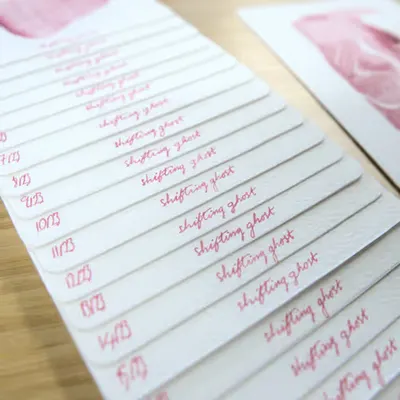 shifting ghost
shifting ghost
shifting ghost
shifting ghost
shifting ghost
shifting ghost
7/23 shifting ghost
8/23 shifting ghost
9/23 shifting ghost
10/23 shifting ghost
11/23 shifting ghost
12/23 shifting ghost
13/23 shifting ghost
14/23 shifting ghost
15/23 shifting ghost
shifting ghost
shifting ghost